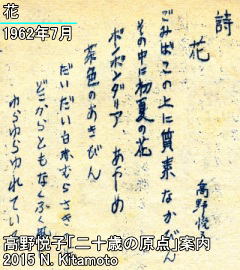 花
1962年7月
詩
花
高野悦子
ごみばこの上に質素なかびん
その中に初夏の花
ポンポンダリア、あやめ
茶色のあきびん
だいだい白赤むらさき
どこからともなくふく風
ゆらゆらゆれている
高野悦子「二十歳の原点」案内
2015 N. Kitamoto